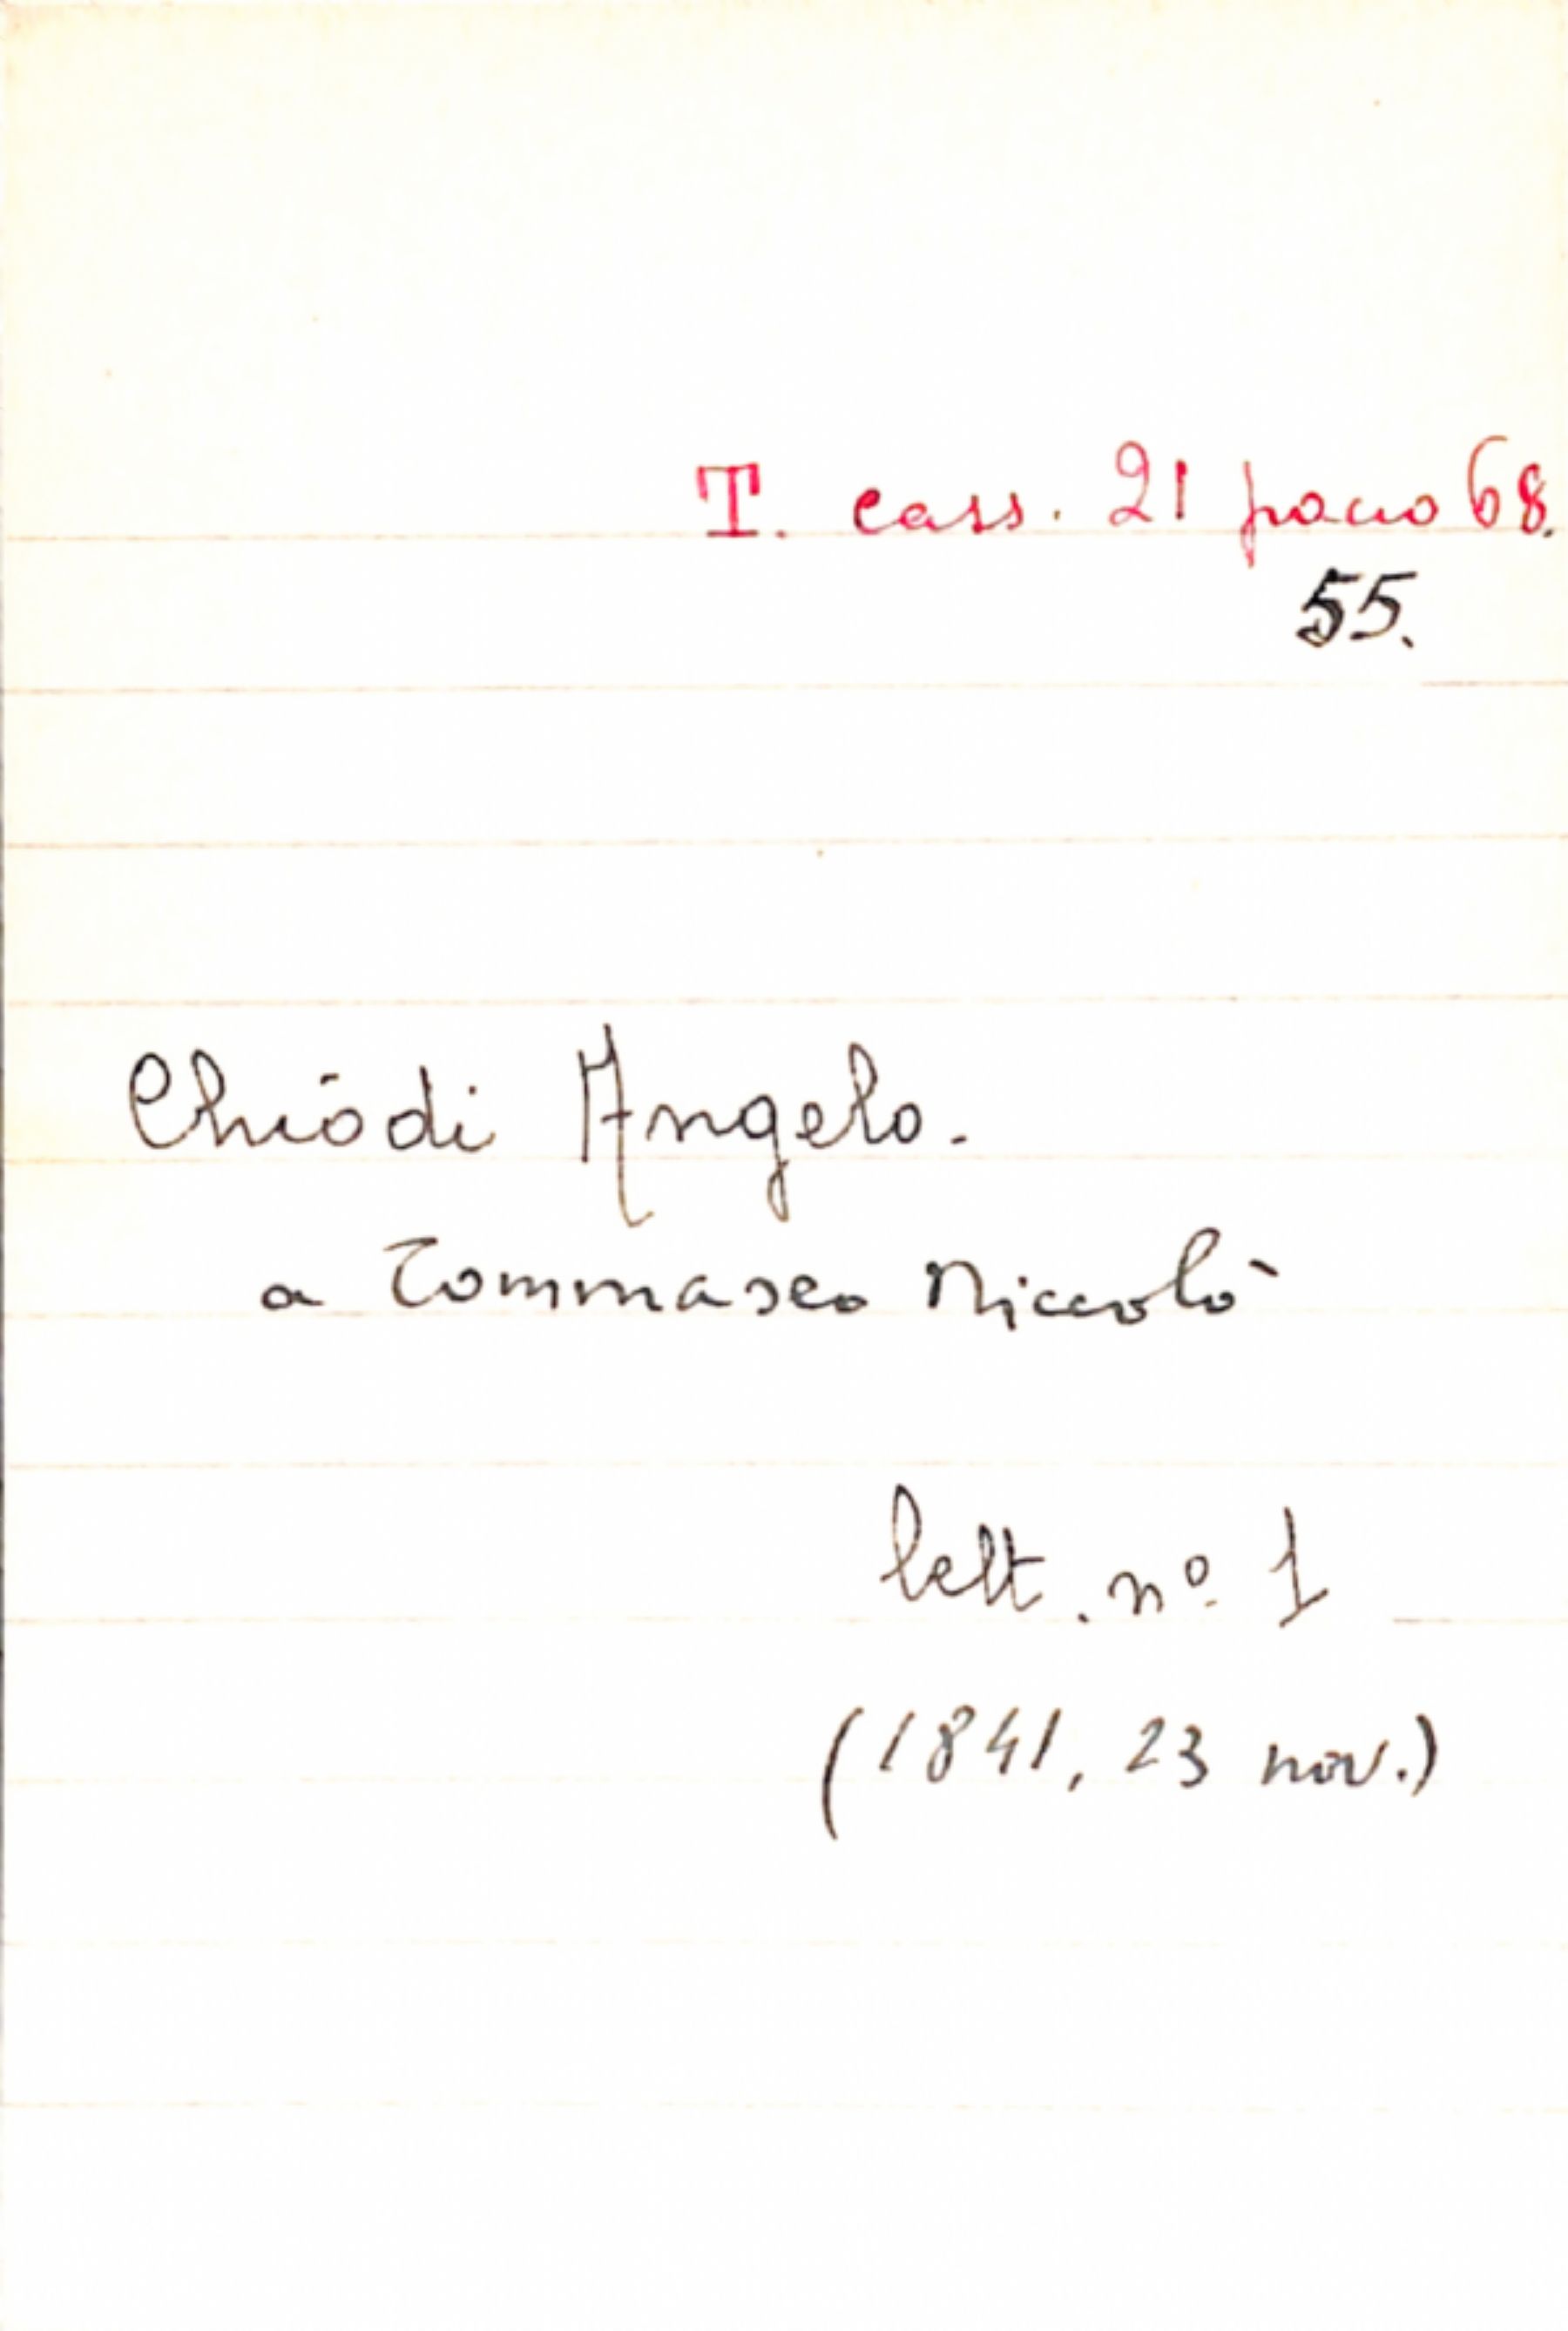 T. cass. 21 pacco 68.
55.
Chiodi Angelo.
a Tommaseo Niccolò
lett. nº 1
(1841, 23 nov.)